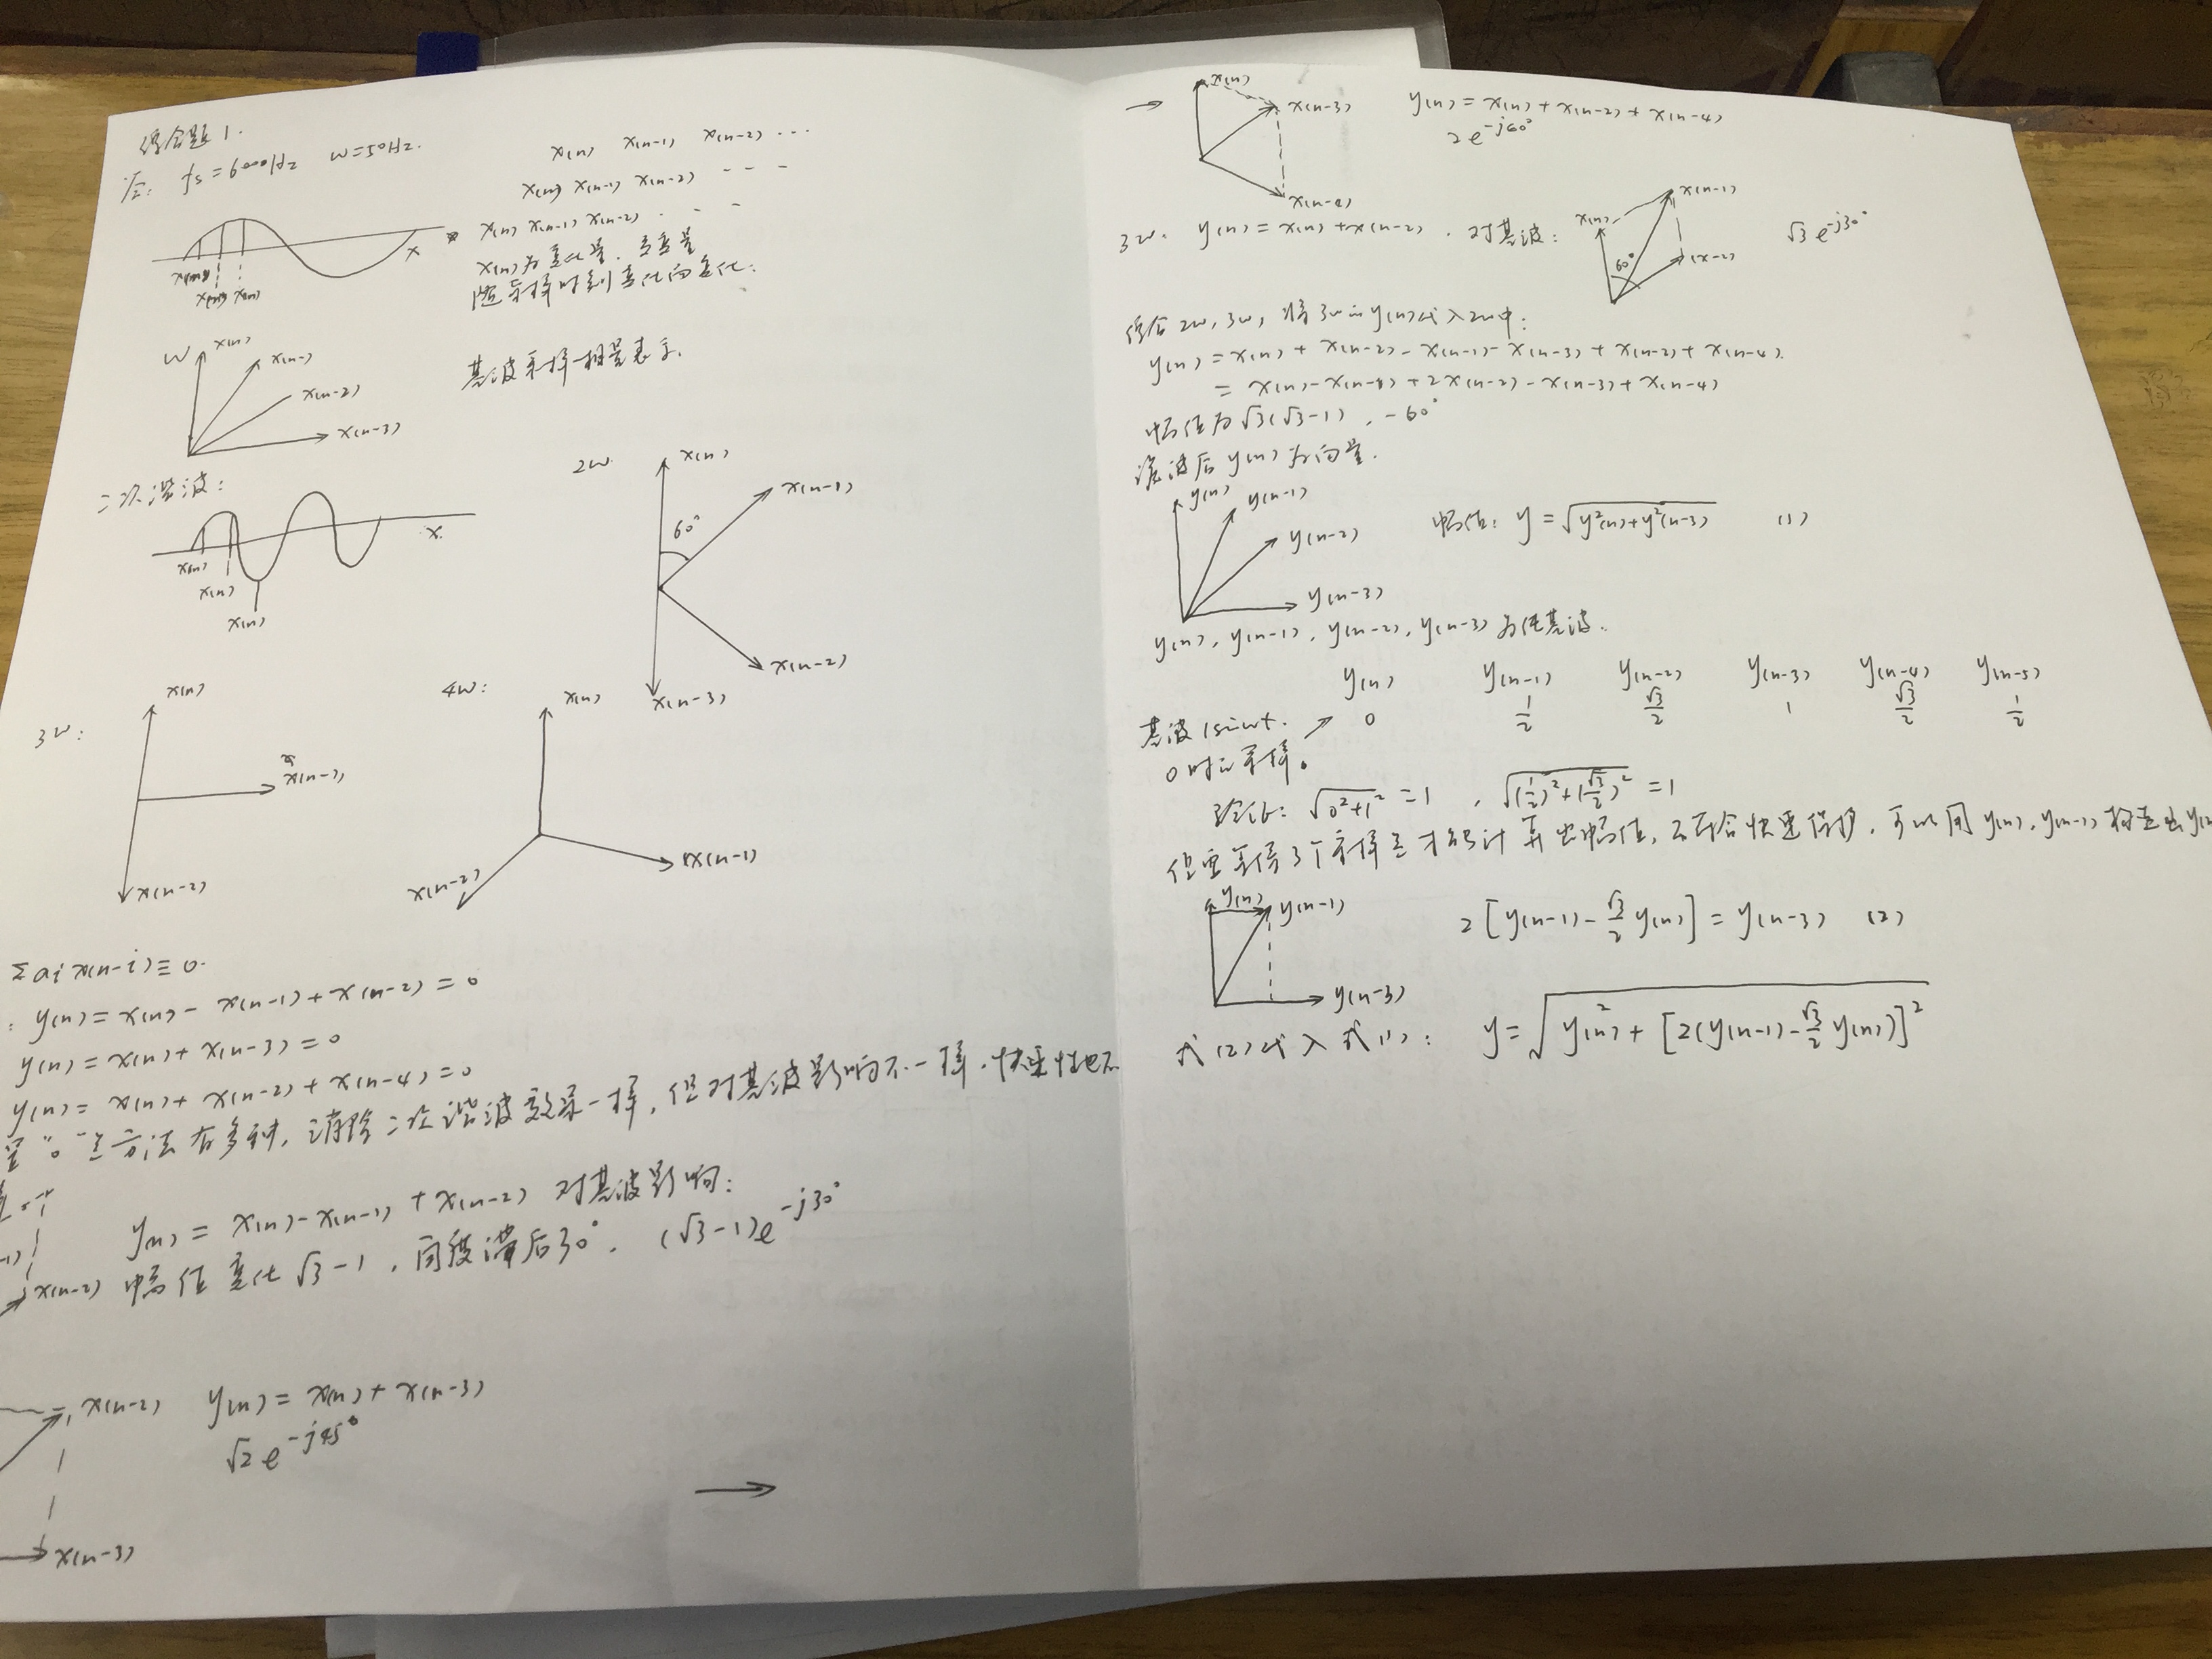 综合题1.
fs=6000Hz w=50Hz.
x(n) x(n-1) x(n-2) ...
x(n) x(n-1) x(n-2) ...
x(n) x(n-1) x(n-2) ...
x(n)为变化量.
随采样时刻变化而变化.
x
x(n)
x(n)
x(n)
w
x(n)
x(n-1)
x(n-2)
x(n-3)
基波采样相量表示.
二次谐波:
x
x(n)
x(n)
x(n)
2w.
x(n)
60°
x(n-1)
x(n-2)
x(n-3)
3w:
x(n)
x(n-1)
x(n-2)
4w:
x(n)
x(n-1)
x(n-2)
Σai x(n-i)≡0.
: y(n)=x(n)-x(n-1)+x(n-2)=0
y(n)=x(n)+x(n-3)=0
y(n)=x(n)+x(n-2)+x(n-4)=0
“0”方法有多种, 消除二次谐波效果一样, 但对基波影响不一样. 快速性也不
y(n)=x(n)-x(n-1)+x(n-2) 对基波影响:
x(n-2) 幅值变化√3-1, 角度滞后30°. (√3-1)e^-j30°
x(n-2) y(n)=x(n)+x(n-3)
√2 e^-j45°
→
x(n-3)
→
x(n)
x(n-3)
y(n)=x(n)+x(n-2)+x(n-4)
2e^-j60°
3w. y(n)=x(n)+x(n-2). 对基波:
x(n)
x(n-1)
60°
(x-2)
√3 e^-j30°
综合2w, 3w, 将3w y(n)代入2w中:
y(n)=x(n)+x(n-2)-x(n-1)-x(n-3)+x(n-2)+x(n-4).
=x(n)-x(n-1)+2x(n-2)-x(n-3)+x(n-4)
幅值为√3(√3-1), -60°
滤波后y(n)为向量.
y(n)
y(n-1)
y(n-2)
y(n-3)
幅值: y=√(y²(n)+y²(n-3)) (1)
y(n), y(n-1), y(n-2), y(n-3)为纯基波.
y(n) y(n-1) y(n-2) y(n-3) y(n-4) y(n-5)
0 1/2 √3/2 1 √3/2 1/2
基波1sinwt.
0时 采样.
验证: √(0²+1²)=1, √((1/2)²+(√3/2)²)=1
但要等得3个采样点才能计算出幅值, 不符合快速保护. 可以用y(n), y(n-1)构造出y(n
y(n)
y(n-1)
y(n-3)
2[y(n-1)-√3/2 y(n)]=y(n-3) (2)
式(2)代入式(1): y=√(y(n)²+[2(y(n-1)-√3/2 y(n))]²)